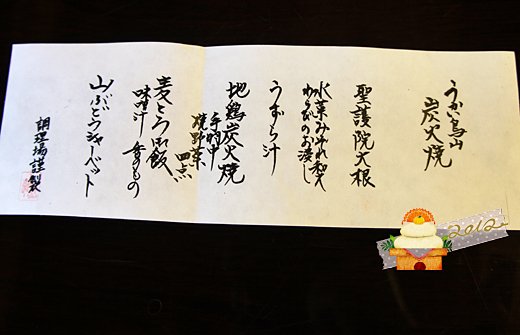 うかい鳥山
炭火焼
聖護院大根
水菜みぞれ和え
わらびのお浸し
うずら汁
地鶏炭火焼
手羽
焼野菜 四点
麦とろ御飯
味噌汁 香のもの
山ぶどうシャーベット
調理場謹製
2012